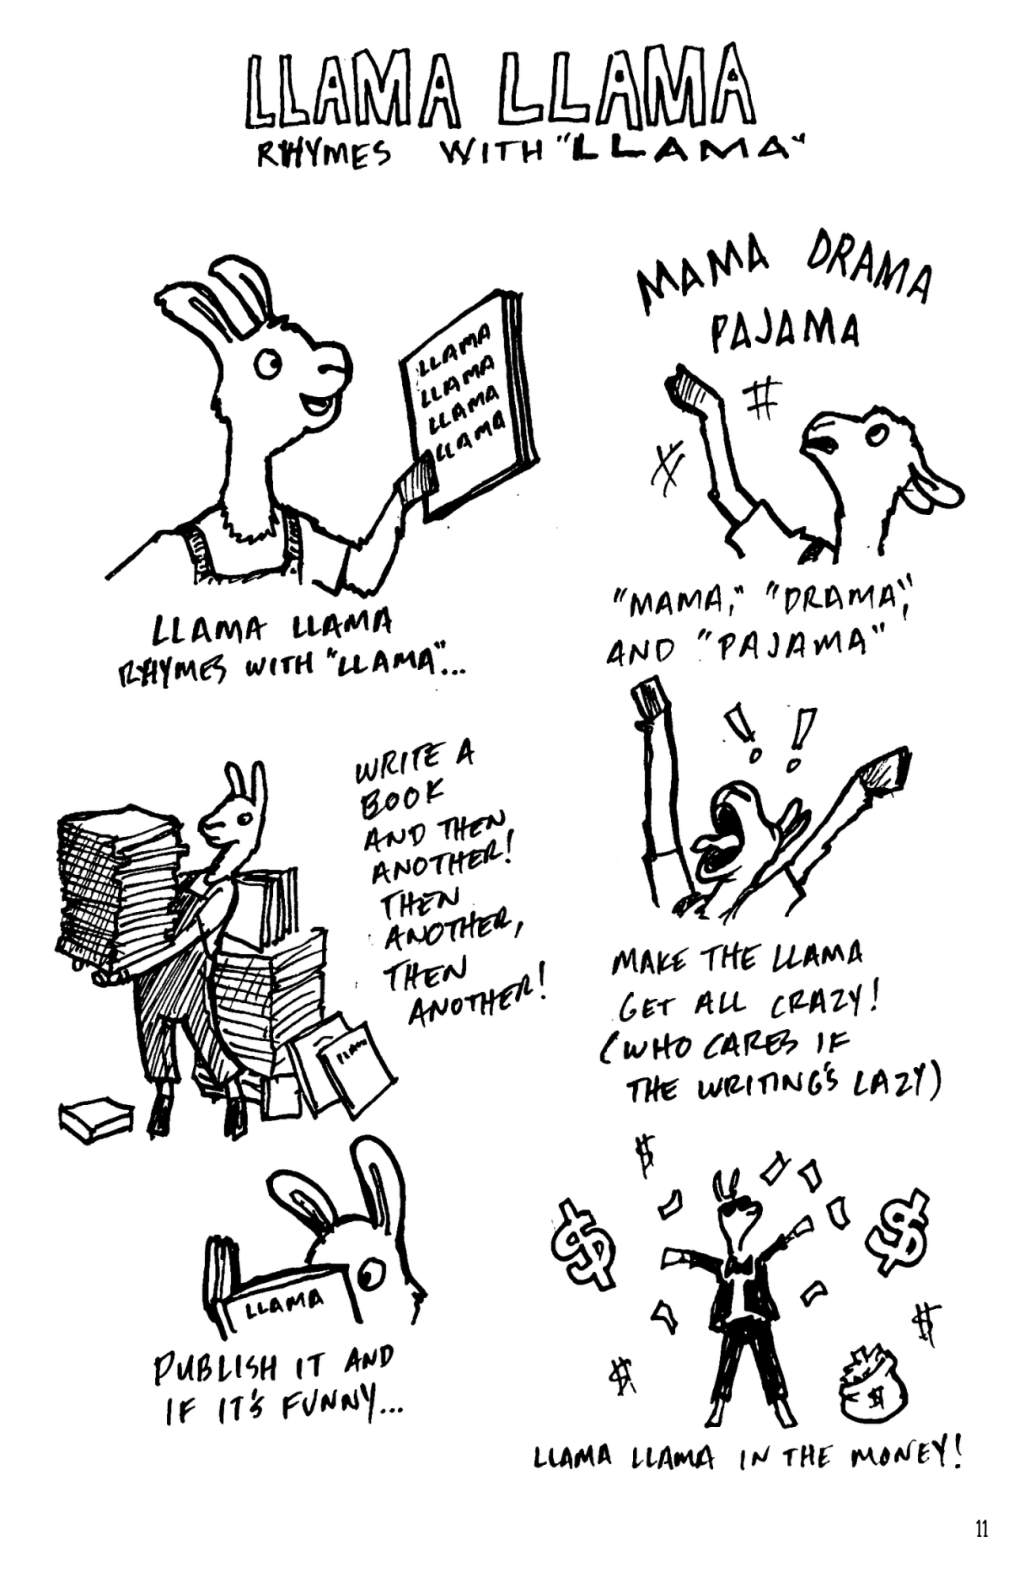 LLAMA LLAMA
RHYMES WITH "LLAMA"
LLAMA
LLAMA
LLAMA
LLAMA
LLAMA LLAMA
RHYMES WITH "LLAMA"...
MAMA DRAMA
PAJAMA
"MAMA," "DRAMA",
AND "PAJAMA"
WRITE A
BOOK
AND THEN
ANOTHER!
THEN
ANOTHER,
THEN
ANOTHER!
LLAMA
!!
MAKE THE LLAMA
GET ALL CRAZY!
(WHO CARES IF
THE WRITING'S LAZY)
LLAMA
PUBLISH IT AND
IF IT'S FUNNY...
$
$
$
$
$
$
LLAMA LLAMA IN THE MONEY!
11